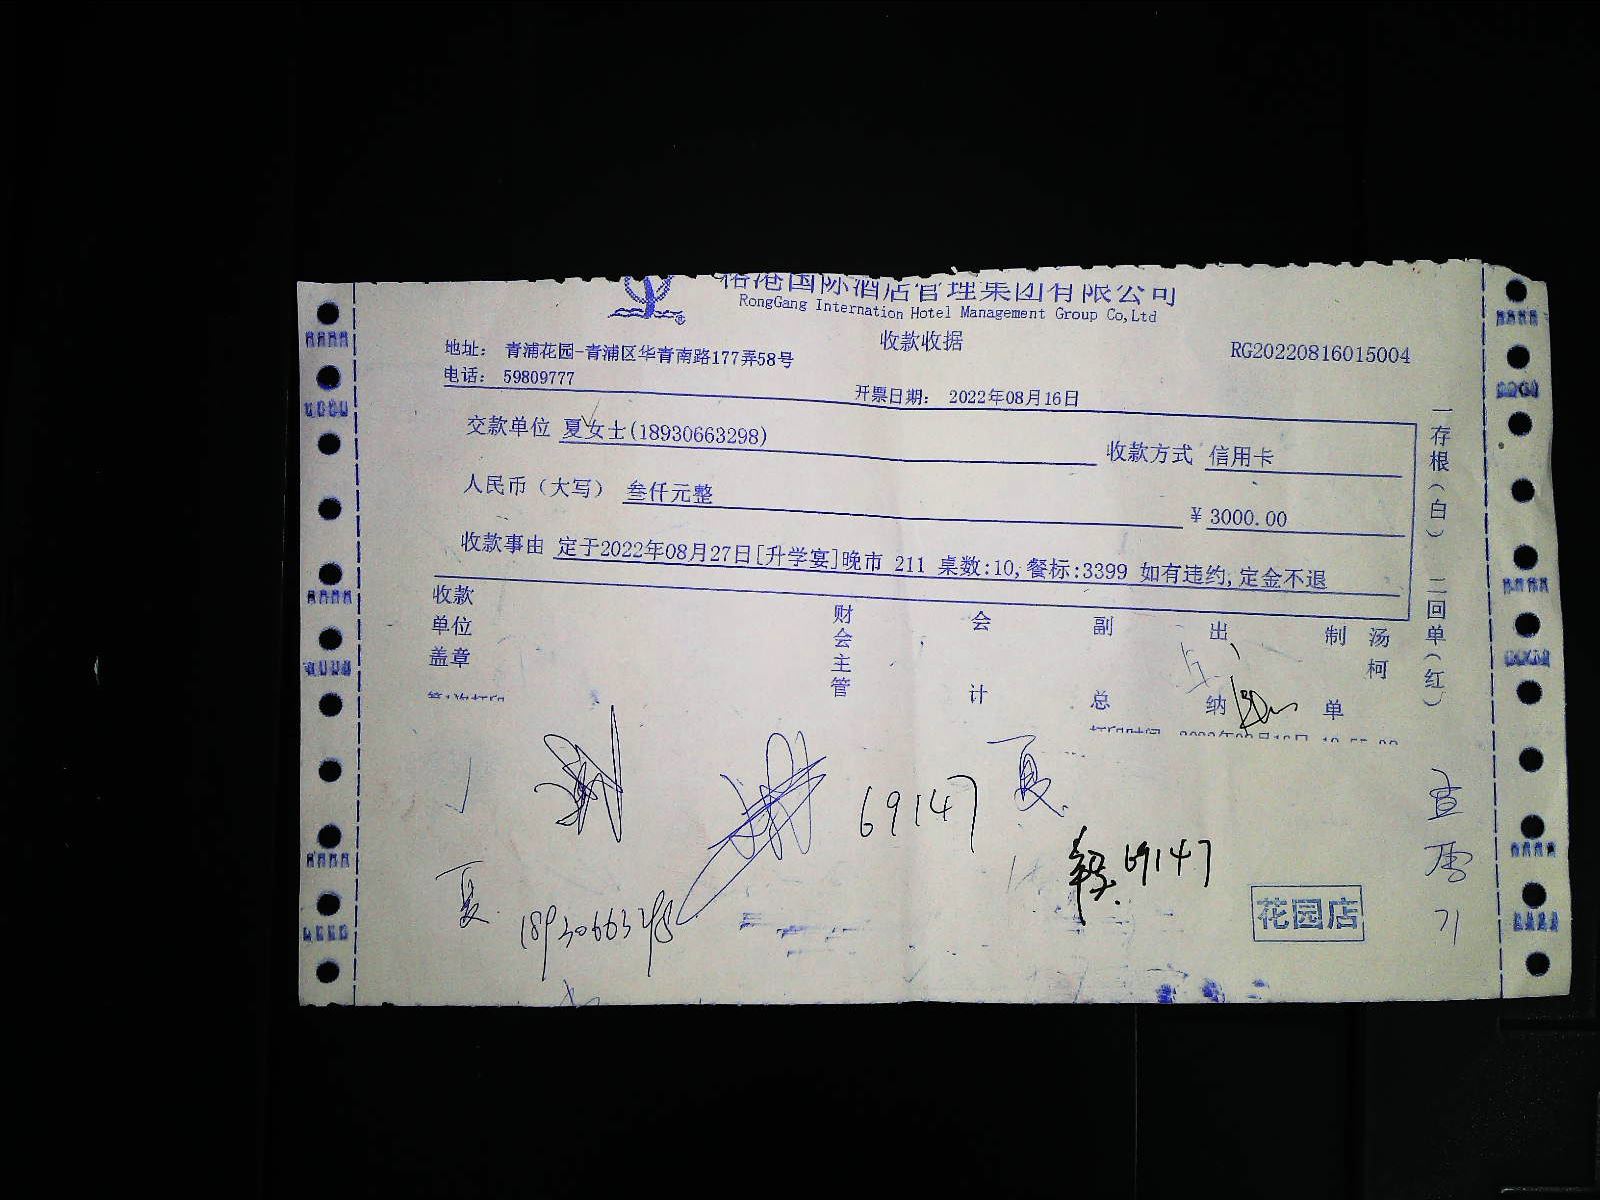 港国际酒店管理集团有限公司
RongGang Internation Hotel Management Group Co,Ltd
收款收据
地址: 青浦花园-青浦区华青南路177弄58号
RG20220816015004
电话: 59809777
开票日期: 2022年08月16日
交款单位 夏女士(18930663298)
收款方式 信用卡
人民币（大写） 叁仟元整
¥ 3000.00
收款事由 定于2022年08月27日[升学宴]晚市 211 桌数:10,餐标:3399 如有违约,定金不退
收款单位盖章
财会主管
会计
副总
出纳
制单
汤柯
一存根(白)
二回单(红)
69147
夏
夏
18930663298
69147
花园店